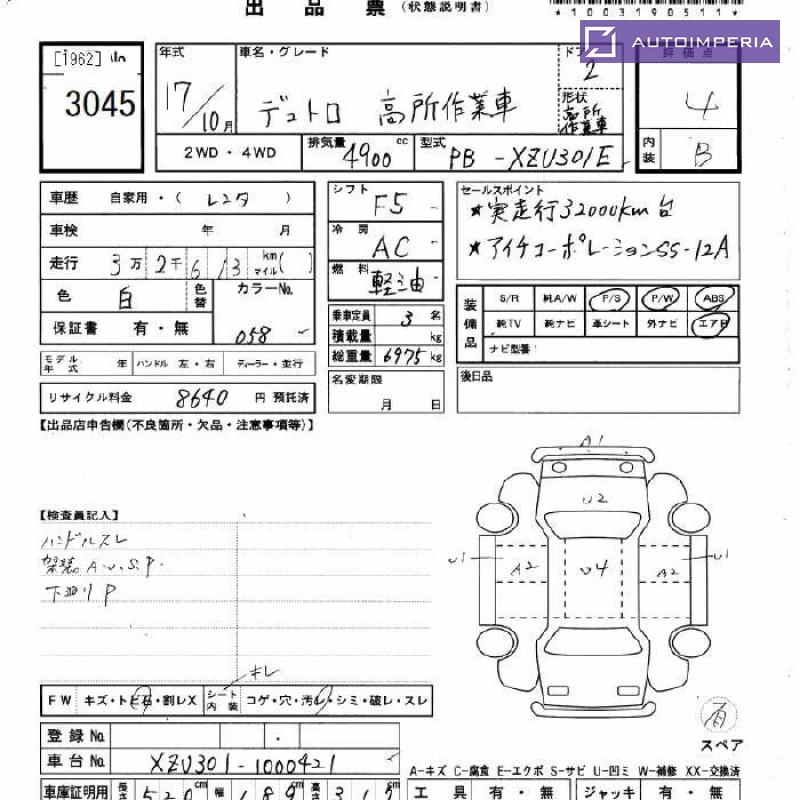 出 品 票 (状態説明書)
*1003190511*
AUTOIMPERIA
[1962]
3045
年式
17/10月
車名・グレード
デュトロ 高所作業車
ドア
2
形状
高所作業車
評価点
4
内装
B
2WD・4WD
排気量
4900 cc
型式
PB-XZU301E
車歴 自家用・(レンタ)
車検 年 月
走行 3万2千613 km マイル( )
色 白 色替
カラーNo.
058
保証書 有・無
モデル年式 年 ハンドル 左・右 ディーラー・並行
リサイクル料金 8640 円 預託済
シフト
F5
冷房
AC
燃料
軽油
乗車定員 3 名
積載量 kg
総重量 6975 kg
名変期限
月 日
セールスポイント
★実走行32000km台
★アイチコーポレーションSS-12A
装備品
S/R 純A/W P/S P/W ABS
純TV 純ナビ 革シート 外ナビ エアB
ナビ型番:
後日品
【出品店申告欄(不良箇所・欠品・注意事項等)】
【検査員記入】
ハンドルスレ
架装A.U.S.P.
下廻りP
A1
U2
U1 A2 U4 A2 U1
キレ
FW キズ・トビ石・割レX シート内装 コゲ・穴・汚レ・シミ・破レ・スレ
有
スペア
登録 No.
車台 No. XZU301-1000421
A-キズ C-腐食 E-エクボ S-サビ U-凹ミ W-補修 XX-交換済
車庫証明用 長さ 520 cm 幅 189 cm 高さ 317 cm
工具 有・無 ジャッキ 有・無